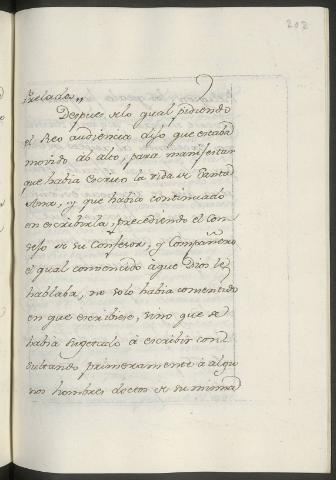 202
Prelados,,
Despues de lo qual pidiendo
el Reo audiencia dijo que estaba
movido ab alto, para manifestar
que habia escrito la vida de Santa
Ana, y que habia continuado
en escribirla, precediendo el Con
sejo de su Confesor, y Compañero
el qual convencido à que Dios le
hablaba, no solo habia consentido
en que escribiese, sino que se
habia sugetado à escribir con
sultando primeramente à algu
nos hombres doctos de su misma